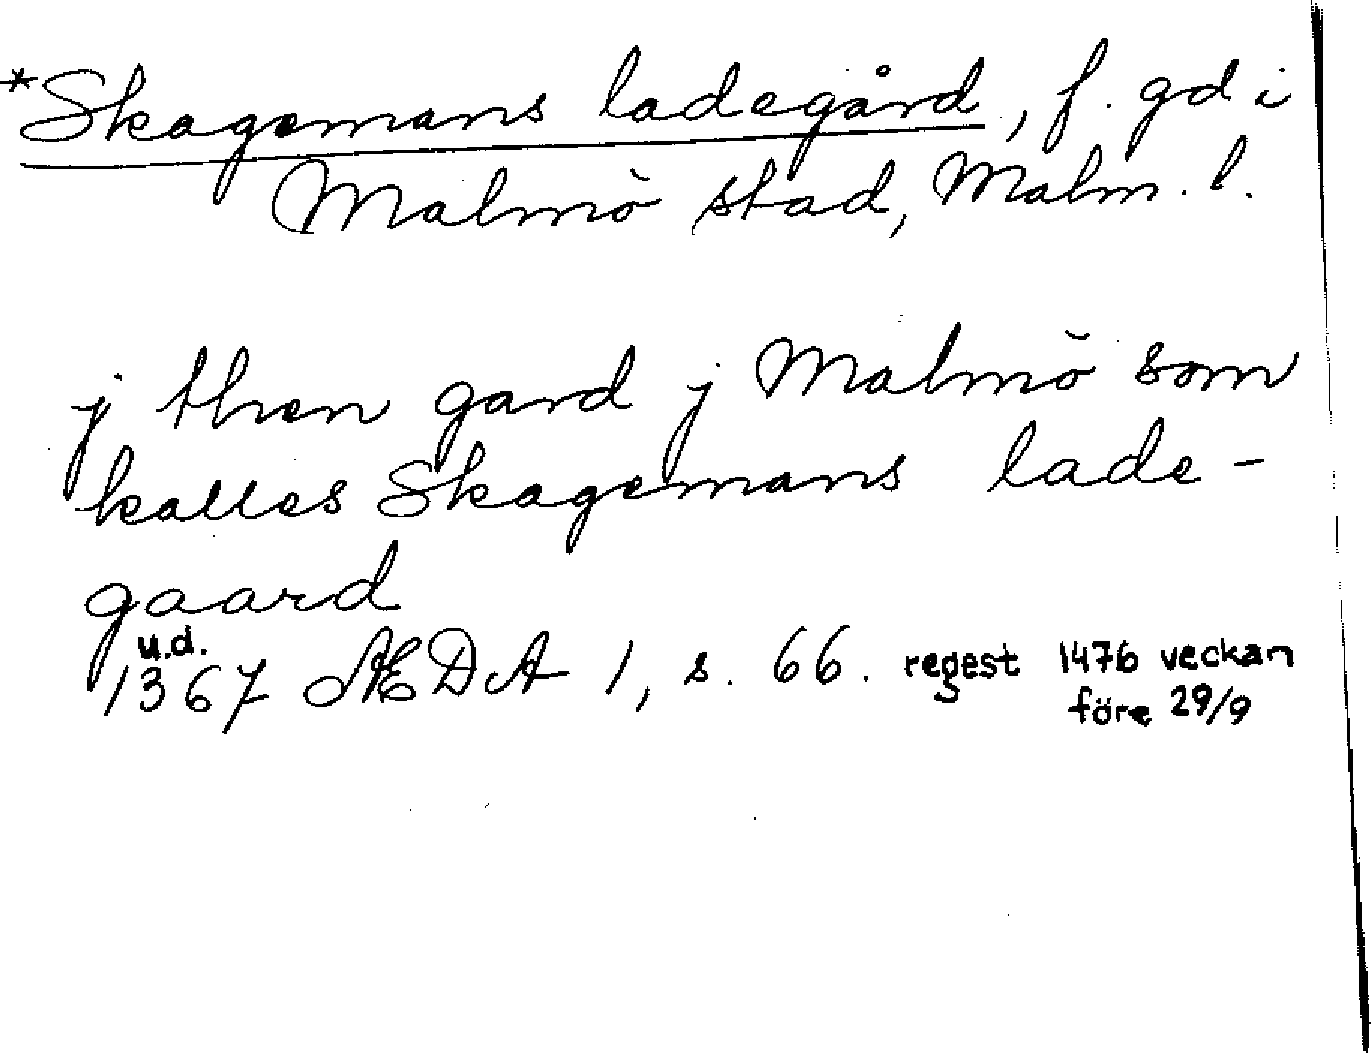 *Skagemans ladegård, f. gd i
Malmö stad, Malm. l.
j then gard j Malmö som
kalles Skagemans lade-
gaard
u.d.
1367 ÆDA 1, s. 66. regest 1476 veckan
före 29/9